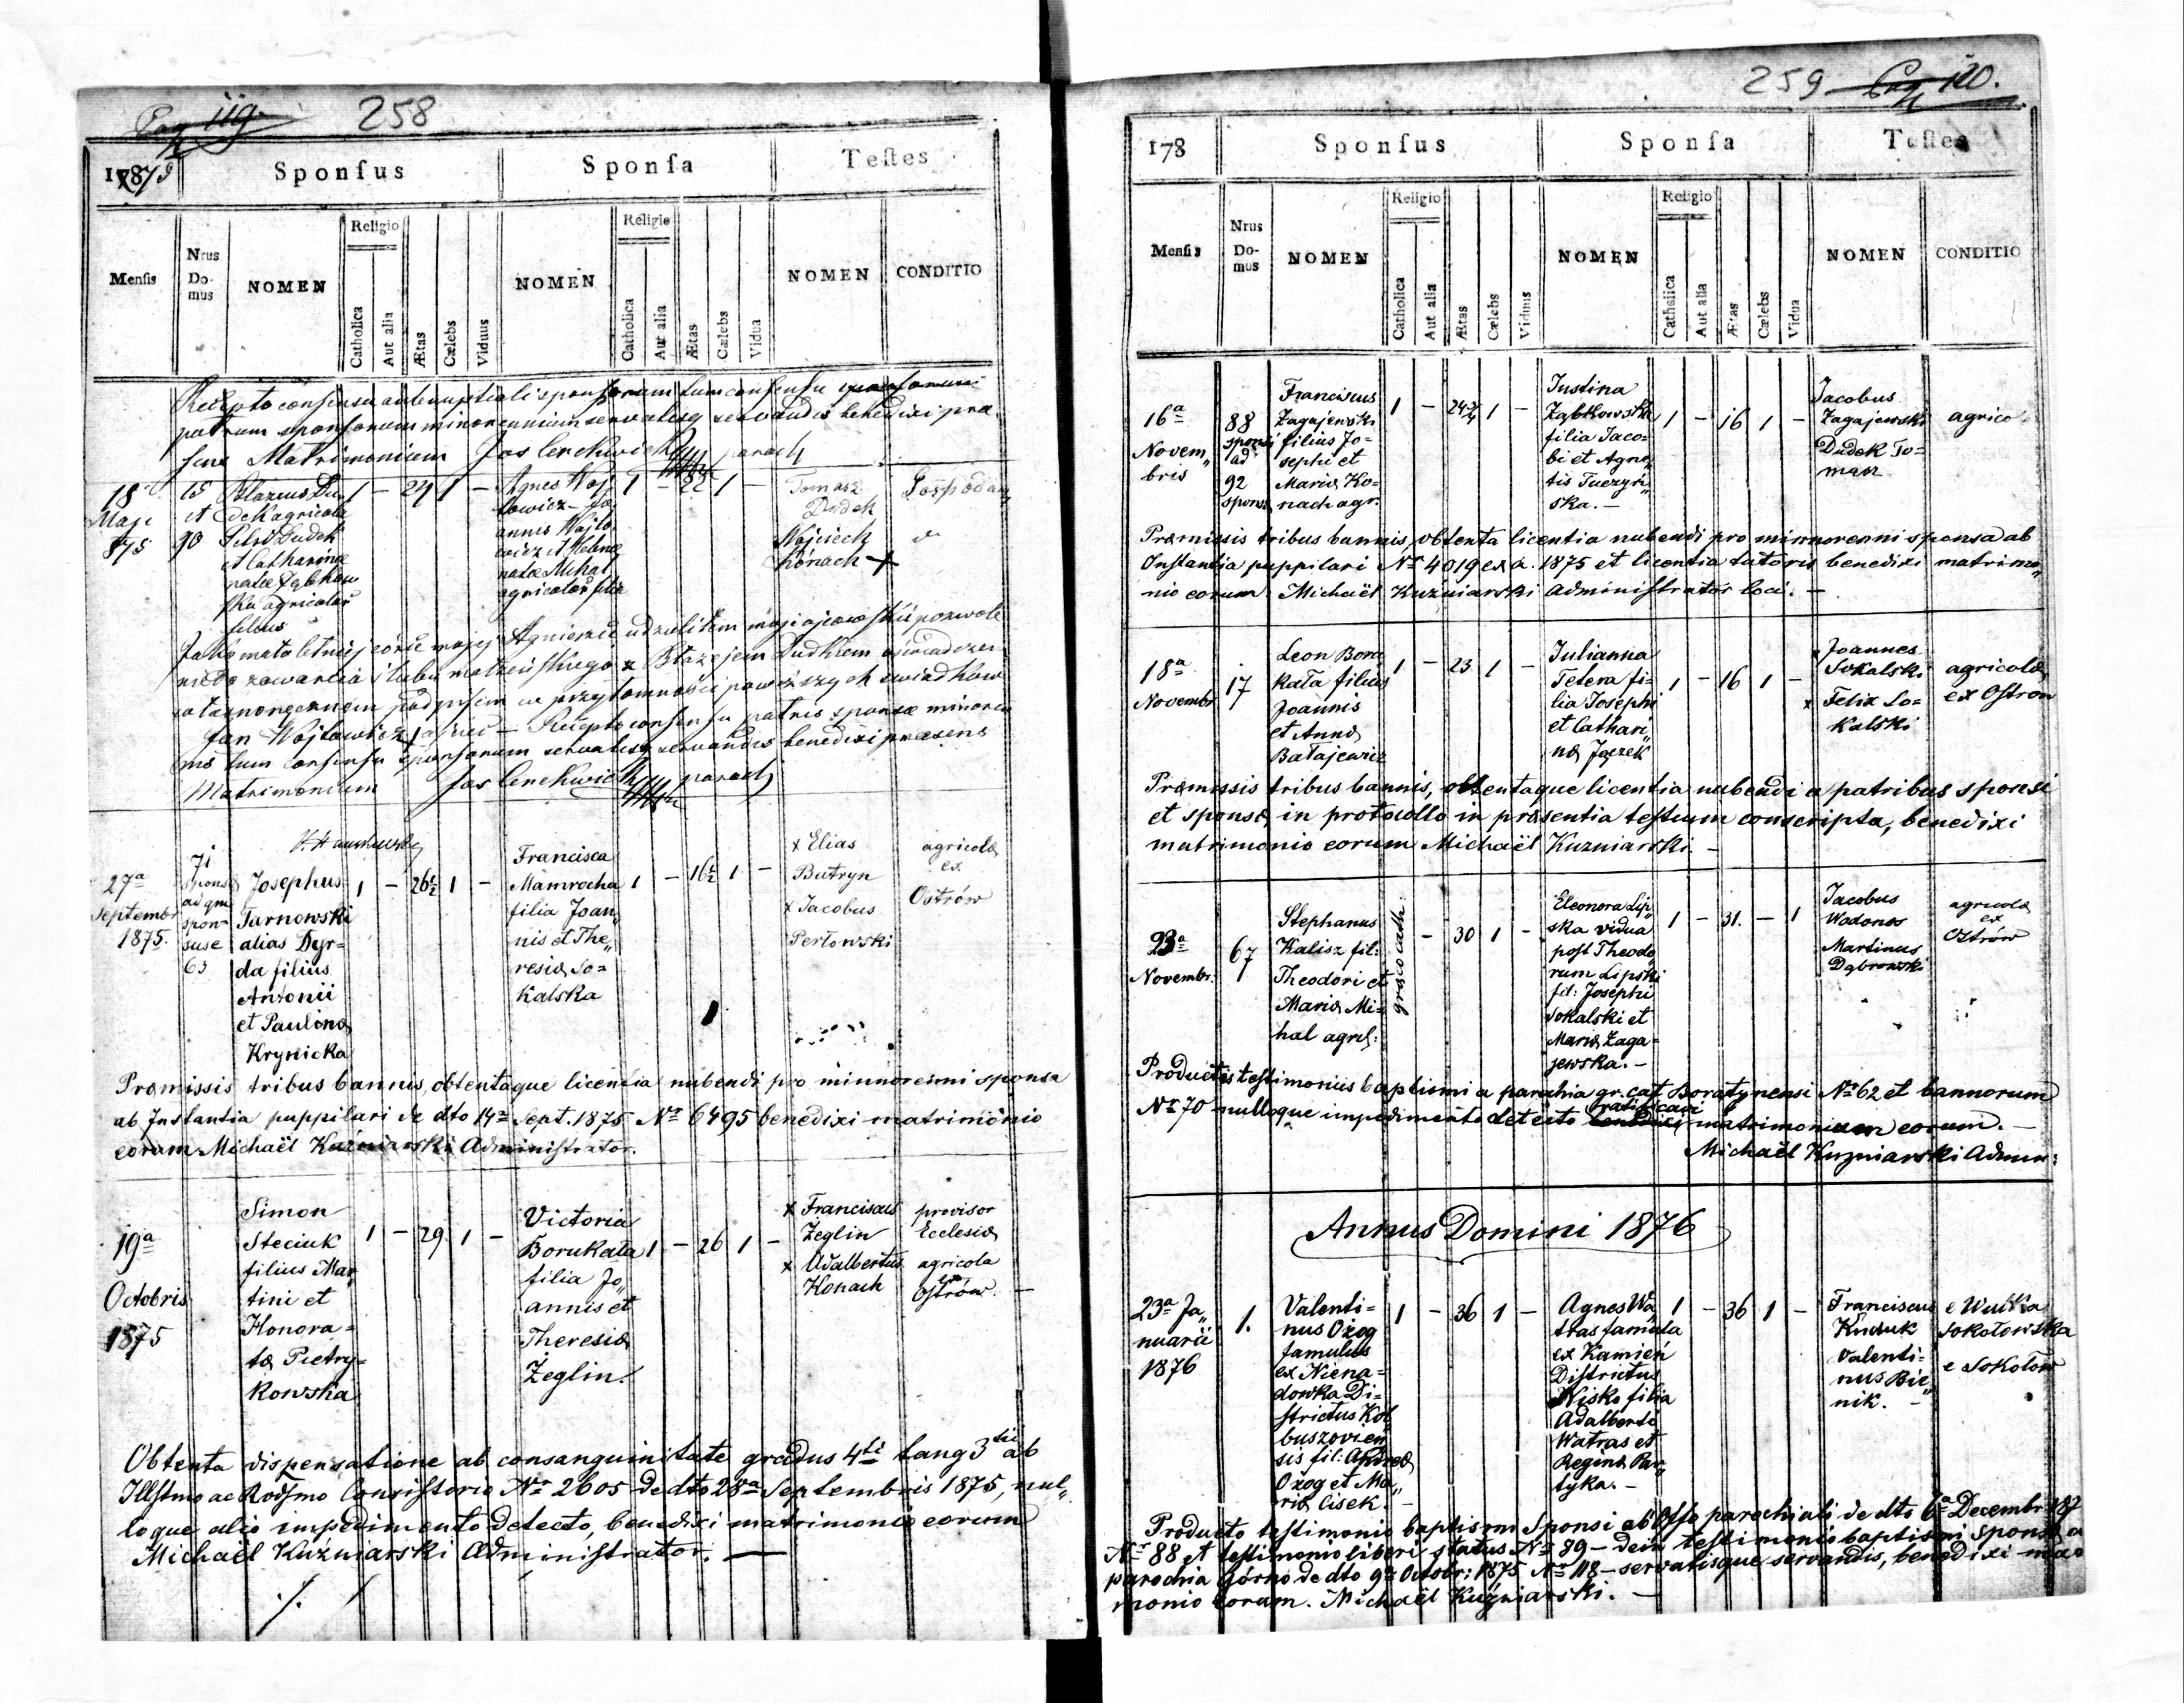 Pag 119. 258
1875
Sponsus
Sponsa
Testes
Mensis
Nrus Domus
NOMEN
Religio
Catholica
Aut alia
Ætas
Cœlebs
Viduus
NOMEN
Religio
Catholica
Aut alia
Ætas
Cœlebs
Vidua
NOMEN
CONDITIO
Recepto consensu antenuptiali sponsorum tum consensu sponsorum
patrum sponsorum minorennium servatisq servandis benedixi præ-
sens Matrimonium Jos Cenchwich parach
18
Maji
875
15
et
90
Blazius Du-
dek agricola
Petri Dudek
et Catharinæ
natæ Ząbkow
ska agricolar
filius
1 - 24 1 -
Agnes Woj
towicz - Jo
annis Wojto
wicz et Helenæ
natæ Michal
agricolar filia
1 - 22 1 -
Tomasz
Dudek
Wojciech
Konach +
Gospodarz
Jako małoletniej córce mojej Agnieszce udzieliłem mojej ojcowskie pozwole
nie do zawarcia ślubu małżeńskiego z Błażejem Dudkiem oświadczen
własnoręcznem podpisem w przytomności powyższych świadków
Jan Wojtowicz ojciec - Recepto consensu patris sponsæ minoren
nis tum consensu sponsorum servatisq servandis benedixi præsens
Matrimonium Jos Cenchwich parach
27a
Septembr
1875.
71
sponsi
ad qm
spon=
suse
63
Josephus
Tarnowski
alias Dyr=
da filius
Antonii
et Paulinæ
Krynicka
1 - 26½ 1 -
Francisca
Mamrocha
filia Joan„
nis et The„
resiæ So=
kalska
1 - 16½ 1 -
x Elias
Butryn
x Jacobus
Perłowski
agricolæ
ex
Ostrów
Præmissis tribus bannis, obtentaque licentia nubendi pro minnorenni sponsa
ab Instantia puppilari de dto 14a Sept. 1875 Nr 6495 benedixi matrimonio
eorum Michaël Kuźniarski Administrator.
19a
Octobris
1875
Simon
Steciuk
filius Mar„
tini et
Honora=
tæ Pietry=
kowska
1 - 29 1 -
Victoria
Borukała
filia Jo„
annis et
Theresiæ
Żeglin.
1 - 26 1 -
x Franciscus
Żeglin
x Adalbertus
Konach
provisor
Ecclesiæ
agricola
ex
Ostrów. -
Obtenta dispensatione ab consanguinitate gradus 4ti tang 3tii ab
Illstmo ac Rodsmo Consistorio Nr 2605 de dto 28va Septembris 1875, nul„
loque alio impedimento detecto, benedixi matrimonio eorum
Michaël Kuźniarski Administrator. —
./.
259 Pag 120.
178
Sponsus
Sponsa
Testes
Mensis
Nrus Domus
NOMEN
Religio
Catholica
Aut alia
Ætas
Cœlebs
Viduus
NOMEN
Religio
Catholica
Aut alia
Ætas
Cœlebs
Vidua
NOMEN
CONDITIO
16a
Novem„
bris
88
sponsi
ad
92
sponsæ
Franciscus
Zagajewski
filius Jo=
sephi et
Mariæ Ko=
nach agr.
1 - 24¾ 1 -
Justina
Ząbkowska
filia Jaco=
bi et Agne„
tis Tuczyń„
ska. -
1 - 16 1 -
Jacobus
Zagajewski
Dudek To=
masz
agrico
Præmissis tribus bannis, obtenta licentia nubendi pro minnorenni sponsa ab
Instantia puppilari Nr 4019 ex a. 1875 et licentia tutoris benedixi matrimo„
nio eorum. Michaël Kuźniarski Administrator loci. -
18a
Novembr
17
Leon Boru
kała filius
Joannis
et Annæ
Bałajewicz
1 - 23 1 -
Julianna
Tetera fi=
lia Josephi
et Cathari„
næ Jączek
1 - 16 1 -
x Joannes
Sokalski
x Felix So=
kalski
agricolæ
ex Ostrow
Præmissis tribus bannis, obtentaque licentia nubendi a patribus sponsi
et sponsæ, in protocollo in præsentia testium conscripta, benedixi
matrimonio eorum Michaël Kuzniarski. -
23a
Novembr.
67
Stephanus
Kalisz fil:
Theodori et
Mariæ Mi=
hal agrl:
græco cath.
- 30 1 -
Eleonora Lip„
ska vidua
post Theodo„
rum Lipski
fil: Josephi
Sokalski et
Mariæ Zaga=
jewska. -
1 - 31. - 1
Jacobus
Wodonos
Martinus
Dąbrowski
agricolæ
ex
Ostrów
Productis testimoniis baptismi a parochia gr. cat Boratynensi Nr 62 et bannorum
Nr 70 nulloque impedimento detecto benedixi ratificavi matrimonium eorum. -
Michaël Kuzniarski Admin:
Annus Domini 1876
23a Ja„
nuarii
1876
1.
Valenti=
nus Ożog
famulus
ex Niena=
dowka Di=
strictus Kol
buszovien
sis fil: Andreæ
Ożog et Ma„
riæ Cisek. -
1 - 36 1 -
Agnes Wa„
tras famula
ex Kamień
Districtus
Nisko filia
Adalberti
Watras et
Reginæ Par„
tyka. -
1 - 36 1 -
Franciscus
Kuduk
Valenti=
nus Bie„
nik. -
e Wulka
Sokołowska
e Sokołow
Producto testimonio baptismi Sponsi ab Offo parochiali de dto 6a Decembr 187
Nr 88 et testimonio liberi status Nr 89 - dein testimonio baptismi Sponsæ a
parochia Górno de dto 9a Octobr: 1875 Nr 118 - servatisque servandis, benedixi ma
monio eorum. Michaël Kuźniarski. -